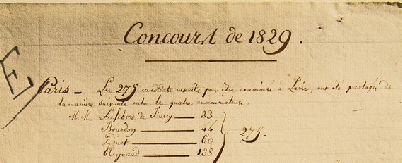 Concours de 1829.
E
Paris — Les 275 candidats inscrits pour être examinés à Paris, ont été partagés de
la manière suivante entre les quatre examinateurs.
M.M. Lefébure de Fourcy — 23
Bourdon — 44
— 60
Reynaud — 128
275.